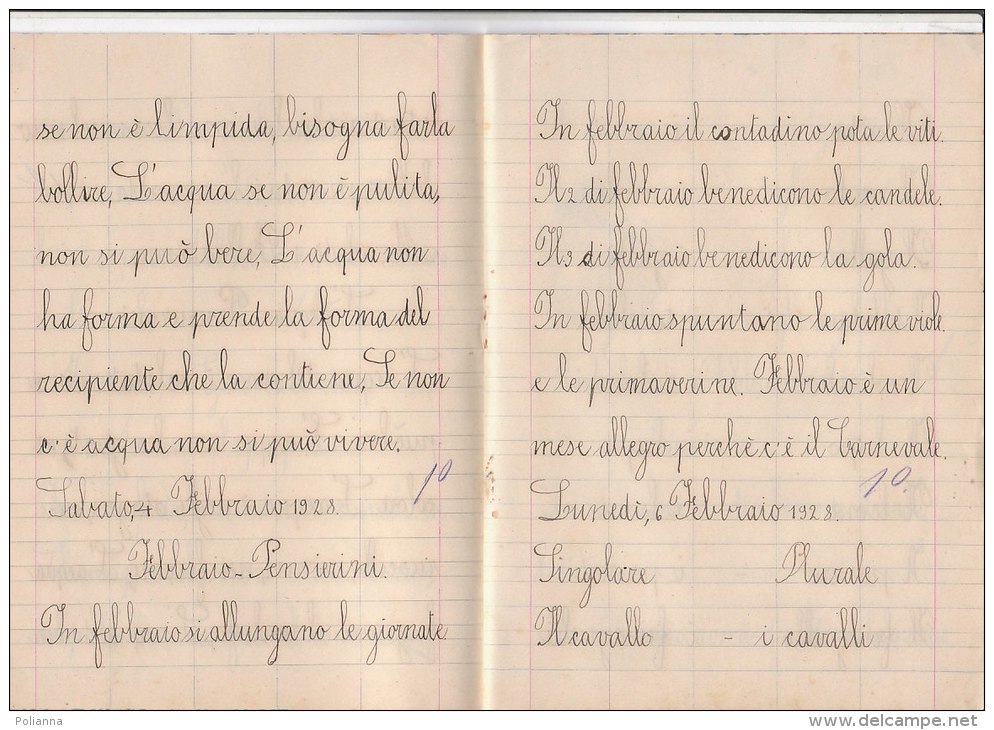 se non è limpida, bisogna farla
bollire, L'acqua se non è pulita,
non si può bere, L'acqua non
ha forma e prende la forma del
recipiente che la contiene, Se non
c'è acqua non si può vivere.
10
Sabato, 4 Febbraio 1928.
Febbraio - Pensierini.
In febbraio si allungano le giornate
In febbraio il contadino pota le viti.
Il 2 di febbraio benedicono le candele.
Il 3 di febbraio benedicono la gola.
In febbraio spuntano le prime viole.
e le primaverine. Febbraio è un
mese allegro perchè c'è il Carnevale.
10.
Lunedì, 6 Febbraio 1928.
Singolare Plurale
Il cavallo - i cavalli
Polianna
www.delcampe.net